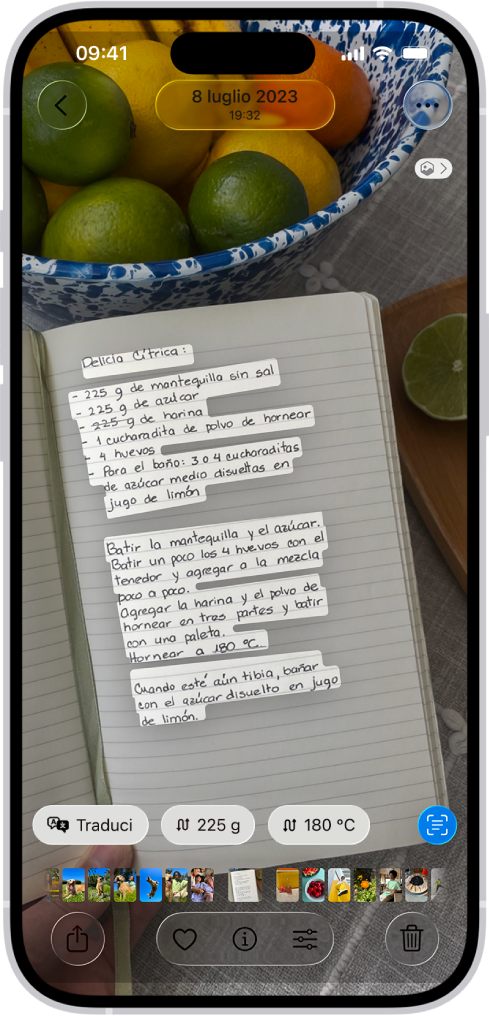 09:41
8 luglio 2023
19:32
Delicia Cítrica:
- 225 g de mantequilla sin sal
- 225 g de azúcar
- 225 g de harina
- 1 cucharadita de polvo de hornear
- 4 huevos
- Para el baño: 3 o 4 cucharaditas
de azúcar medio disueltas en
jugo de limón
Batir la mantequilla y el azúcar.
Batir un poco los 4 huevos con el
tenedor y agregar a la mezcla
poco a poco.
Agregar la harina y el polvo de
hornear en tres partes y batir
con una paleta.
Hornear a 180 °C.
Cuando esté aún tibia, bañar
con el azúcar disuelto en jugo
de limón.
Traduci
225 g
180 °C